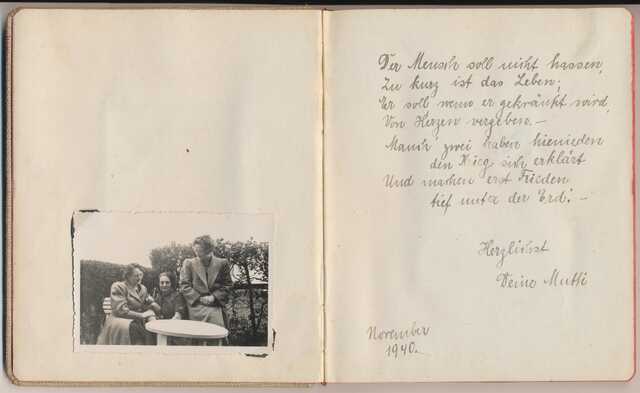 Der Mensch soll nicht hassen,
Zu kurz ist das Leben;
Er soll wenn er gekränkt wird,
Von Herzen vergeben. –
Manch' zwei haben hienieden
den Krieg sich erklärt
Und machen erst Frieden
tief unter der Erd'. –
Herzlichst
Deine Mutti
November
1940. –